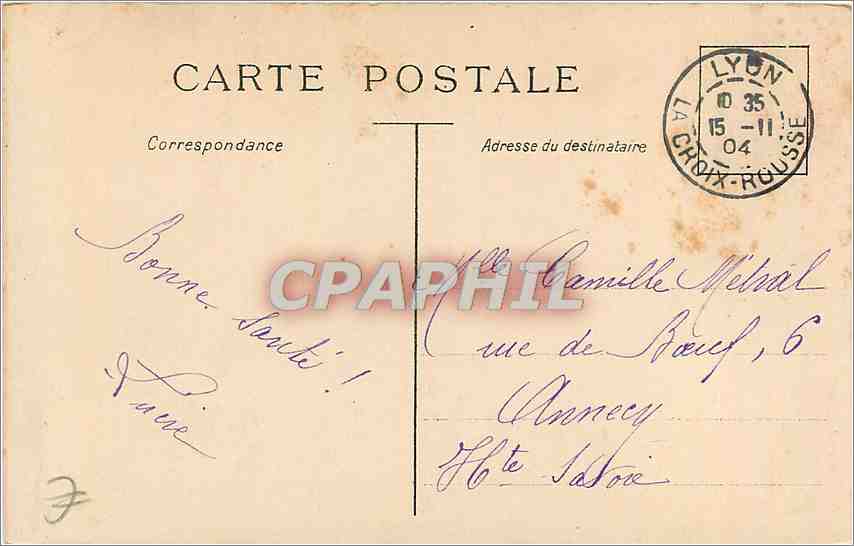 CARTE POSTALE
Correspondance
Adresse du destinataire
LYON
10 35
15 -11
04
LA CROIX-ROUSSE
Bonne santé !
Lucie
CPAPHIL
Mlle Camille Métral
rue de Bœuf, 6
Annecy
Hte Savoie